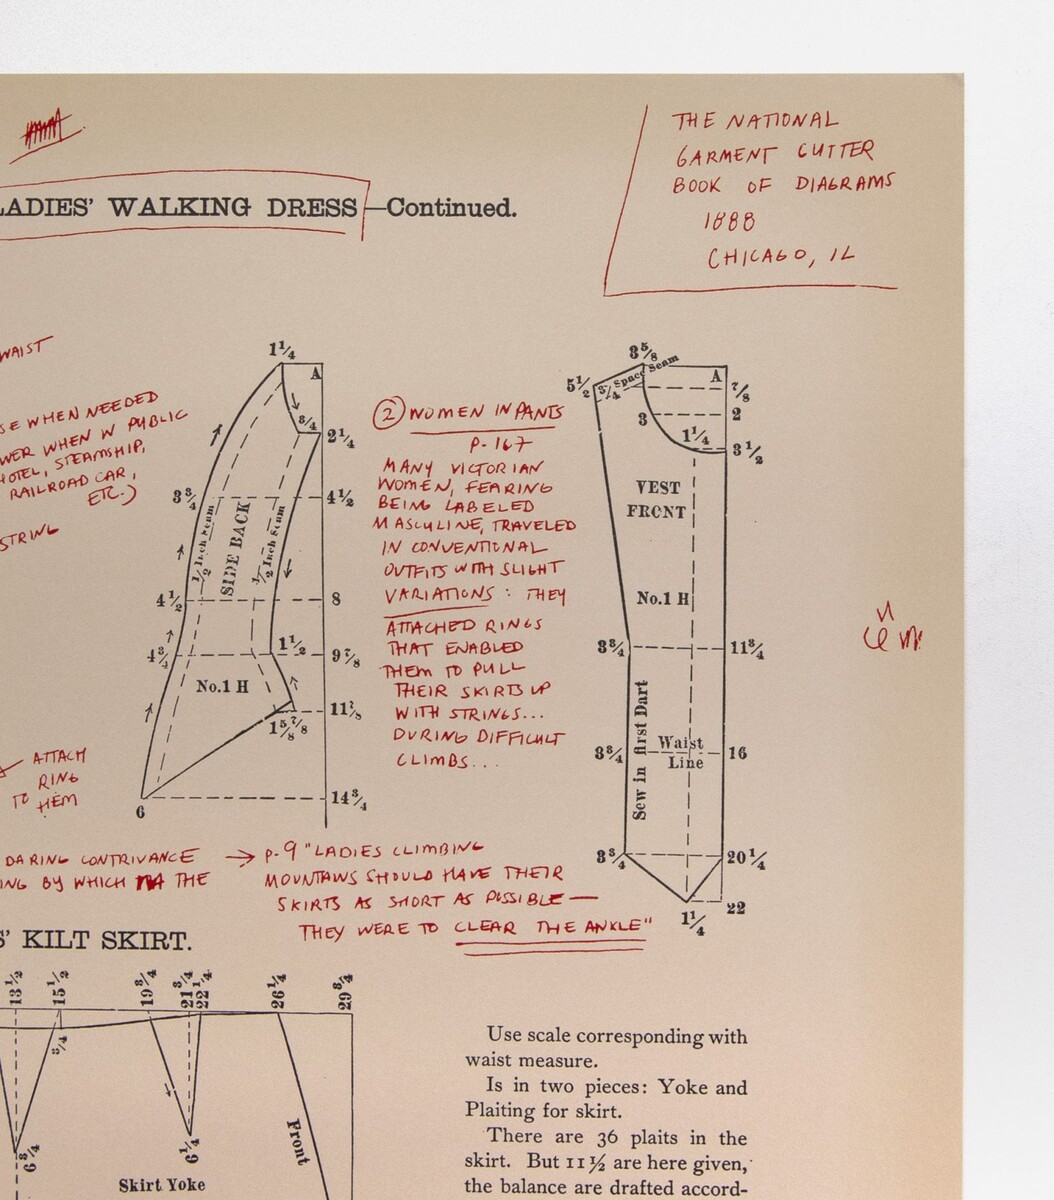 THE NATIONAL
GARMENT CUTTER
BOOK OF DIAGRAMS
1888
CHICAGO, IL
LADIES' WALKING DRESS—Continued.
WAIST
SE WHEN NEEDED
WER WHEN IN PUBLIC
HOTEL, STEAMSHIP,
RAILROAD CAR,
ETC.)
STRING
ATTACH
RING
TO HEM
1 1/4
A
3/4
2 1/4
3 3/4
4 1/2
1/2 Inch Seam
SIDE BACK
1/2 Inch Seam
4 1/2
8
4 3/4
1 1/2
9 7/8
No. 1 H
11 7/8
1 5/8
7/8
14 3/4
6
② WOMEN IN PANTS
P-167
MANY VICTORIAN
WOMEN, FEARING
BEING LABELED
MASCULINE, TRAVELED
IN CONVENTIONAL
OUTFITS WITH SLIGHT
VARIATIONS: THEY
ATTACHED RINGS
THAT ENABLED
THEM TO PULL
THEIR SKIRTS UP
WITH STRINGS...
DURING DIFFICULT
CLIMBS...
3 5/8
5 1/2
3/4 Space Seam
A
7/8
3
2
1 1/4
3 1/2
VEST
FRONT
No. 1 H
3 3/4
11 3/4
Sew in first Dart
3 3/4
Waist
Line
16
3 3/4
20 1/4
1 1/4
22
DARING CONTRIVANCE → P-9 "LADIES CLIMBING
ING BY WHICH THE MOUNTAINS SHOULD HAVE THEIR
SKIRTS AS SHORT AS POSSIBLE —
THEY WERE TO CLEAR THE ANKLE"
S' KILT SKIRT.
13 1/2
15 1/2
19 3/4
21 3/4
22 1/4
26 1/4
29 3/4
3/4
6 3/4
6 1/4
Front
Skirt Yoke
Use scale corresponding with
waist measure.
Is in two pieces: Yoke and
Plaiting for skirt.
There are 36 plaits in the
skirt. But 11 ½ are here given,
the balance are drafted accord-